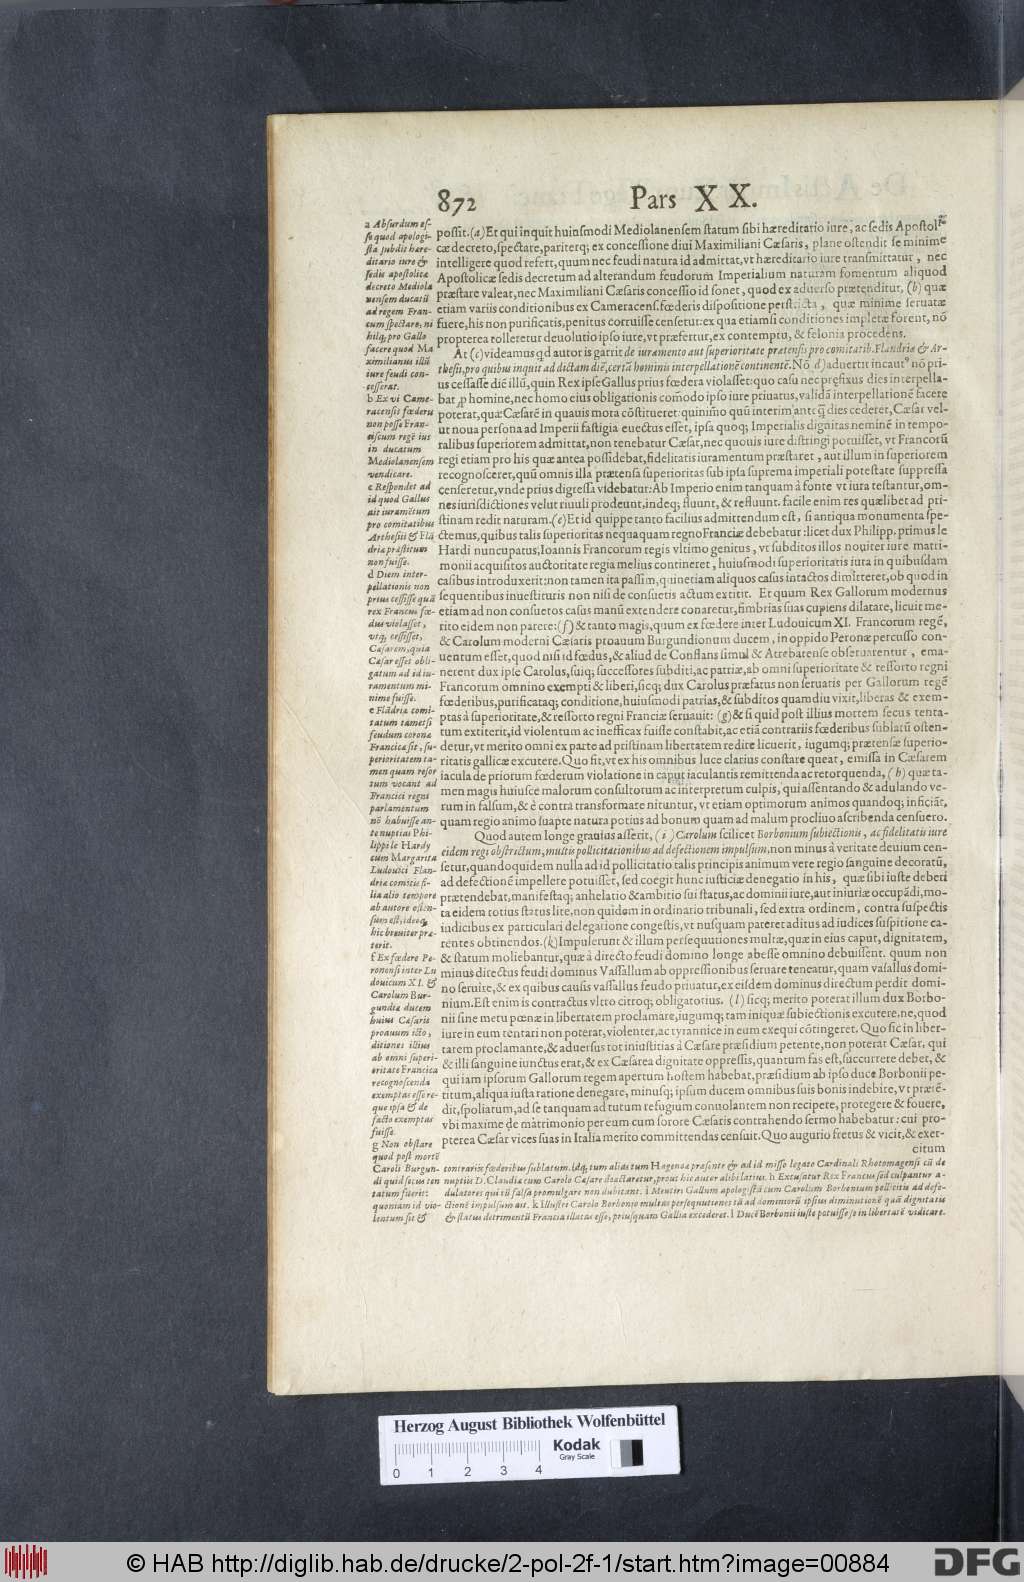 872
Pars X X.
possit.(a)Et qui inquit huiusmodi Mediolanensem statum sibi hæreditario iure, ac sedis Apostoli-
cæ decreto, spectare, pariterq; ex concessione diui Maximiliani Cæsaris, plane ostendit se minime
intelligere quod refert, quum nec feudi natura id admittat, vt hæreditario iure transmittatur, nec
Apostolicæ sedis decretum ad alterandum feudorum Imperialium naturam fomentum aliquod
præstare valeat, nec Maximiliani Cæsaris concessio id sonet, quod ex aduerso prætenditur, (b) quæ
etiam variis conditionibus ex Cameracens. fœderis dispositione perstricta, quæ minime seruatæ
fuere, his non purificatis, penitus corruisse censetur: ex qua etiamsi conditiones impletæ forent, nō
propterea tolleretur deuolutio ipso iure, vt præfertur, ex contemptu, & felonia procedens.
At (c) videamus qd autor is garrit de iuramento aut superioritate prætensis pro comitatib. Flandriæ & Ar-
thesii, pro quibus inquit ad dictam diē, certā hominis interpellationē continentē. Nō d) aduertit incautꝰ nō pri-
us cessasse diē illū, quin Rex ipse Gallus prius fœdera violasset: quo casu nec prefixus dies interpella-
bat p homine, nec homo eius obligationis comodo ipso iure priuatus, validā interpellationē facere
poterat, quæ Cæsarē in quauis mora cōstitueret: quinimo quū interim anteq dies cederet, Cæsar vel-
ut noua persona ad Imperii fastigia euectus esset, ipsa quoq; Imperialis dignitas neminē in tempo-
ralibus superiorem admittat, non tenebatur Cæsar, nec quouis iure distringi potuisset, vt Francorū
regi etiam pro his quæ antea possidebat, fidelitatis iuramentum præstaret, aut illum in superiorem
recognosceret, quū omnis illa prætensa superioritas sub ipsa suprema imperiali potestate suppressa
censeretur, vnde prius digressa videbatur: Ab Imperio enim tanquam à fonte vt iura testantur, om-
nes iurisdictiones velut riuuli prodeunt, indeq; fluunt, & refluunt. facile enim res quælibet ad pri-
stinam redit naturam. (e) Et id quippe tanto facilius admittendum est, si antiqua monumenta spe-
ctemus, quibus talis superioritas nequaquam regno Franciæ debebatur: licet dux Philipp. primus le
Hardi nuncupatus, Ioannis Francorum regis vltimo genitus, vt subditos illos nouiter iure matri-
monii acquisitos auctoritate regia melius contineret, huiusmodi superioritatis iura in quibusdam
casibus introduxerit: non tamen ita passim, quin etiam aliquos casus intactos dimitteret, ob quod in
sequentibus inuestituris non nisi de consuetis actum extitit. Et quum Rex Gallorum modernus
etiam ad non consuetos casus manū extendere conaretur, fimbrias suas cupiens dilatare, licuit me-
rito eidem non parere: (f) & tanto magis, quum ex fœdere inter Ludouicum XI. Francorum regē,
& Carolum moderni Cæsaris proauum Burgundionum ducem, in oppido Peronæ percusso con-
uentum esset, quod nisi id fœdus, & aliud de Conflans simul & Atrebatense obseruarentur, ema-
nerent dux ipse Carolus, suiq; successores subditi, ac patriæ, ab omni superioritate & ressorto regni
Francorum omnino exempti & liberi, sicq; dux Carolus præfatus non seruatis per Gallorum regē
fœderibus, purificataq; conditione, huiusmodi patrias, & subditos quamdiu vixit, liberas & exem-
ptas à superioritate, & ressorto regni Franciæ seruauit: (g) & si quid post illius mortem secus tenta-
tum extiterit, id violentum ac inefficax fuisse constabit, ac etiā contrariis fœderibus sublatū osten-
detur, vt merito omni ex parte ad pristinam libertatem redire licuerit, iugumq; prætensæ superio-
ritatis gallicæ excutere. Quo fit, vt ex his omnibus luce clarius constare queat, emissa in Cæsarem
iacula de priorum fœderum violatione in caput iaculantis remittenda ac retorquenda, (h) quæ ta-
men magis huiusce malorum consultorum ac interpretum culpis, qui assentando & adulando ve-
rum in falsum, & è contra transformare nituntur, vt etiam optimorum animos quandoq; inficiāt,
quam regio animo suapte natura potius ad bonum quam ad malum procliuo ascribenda censuero.
Quod autem longe grauius asserit, (i) Carolum scilicet Borbonium subiectionis, ac fidelitatis iure
eidem regi obstrictum, multis pollicitationibus ad defectionem impulsum, non minus à veritate deuium cen-
setur, quandoquidem nulla ad id pollicitatio talis principis animum vere regio sanguine decoratū,
ad defectionē impellere potuisset, sed coegit hunc iusticiæ denegatio in his, quæ sibi iuste deberi
prætendebat, manifestaq; anhelatio & ambitio sui status, ac dominii iure, aut iniuriæ occupādi, mo-
ta eidem totius status lite, non quidem in ordinario tribunali, sed extra ordinem, contra suspectis
iudicibus ex particulari delegatione congestis, vt nusquam pateret aditus ad iudices suspitione ca-
rentes obtinendos. (k) Impulerunt & illum persequutiones multæ, quæ in eius caput, dignitatem,
& statum moliebantur, quæ à directo feudi domino longe abesse omnino debuissent. quum non
minus directus feudi dominus Vasallum ab oppressionibus seruare teneatur, quam vasallus domi-
no seruire, & ex quibus causis vassallus feudo priuatur, ex eisdem dominus directum perdit domi-
nium. Est enim is contractus vltro citroq; obligatorius. (l) sicq; merito poterat illum dux Borbo-
nii sine metu pœnæ in libertatem proclamare, iugumq; tam iniquæ subiectionis excutere, ne, quod
iure in eum tentari non poterat, violenter, ac tyrannice in eum exequi cōtingeret. Quo sic in liber-
tatem proclamante, & aduersus tot iniustitias à Cæsare præsidium petente, non poterat Cæsar, qui
& illi sanguine iunctus erat, & ex Cæsarea dignitate oppressis, quantum fas est, succurrere debet, &
qui iam ipsorum Gallorum regem apertum hostem habebat, præsidium ab ipso duce Borbonii pe-
titum, aliqua iusta ratione denegare, minusq; ipsum ducem omnibus suis bonis indebite, vt prætē-
dit, spoliatum, ad se tanquam ad tutum refugium conuolantem non recipere, protegere & fouere,
vbi maxime de matrimonio per eum cum sorore Cæsaris contrahendo sermo habebatur: cui pro-
pterea Cæsar vices suas in Italia merito committendas censuit. Quo augurio fretus & vicit, & exer-
citum
a Absurdum es-
se quod apologi-
sta subdit hære-
ditario iure &
sedis apostolicæ
decreto Mediola
nensem ducatū
ad regem Fran-
cum spectare; ni
hilq; pro Gallo
facere quod Ma
ximilianus illū
iure feudi con-
cesserat.
b Ex vi Came-
racensis fœderu
non posse Fran-
ciscum regē ius
in ducatum
Mediolanensem
vendicare.
c Respondet ad
id quod Gallus
ait iuramētum
pro comitatibus
Arthesiii & Flā
driæ præstitum
non fuisse.
d Diem inter-
pellationis non
prius cessisse quā
rex Francus fœ-
dus violasset,
vtq; cessisset,
Cæsarem, quia
Cæsar esset obli-
gatum ad id iu-
ramentum mi-
nime fuisse.
e Flādriæ comi-
tatum tametsi
feudum coronæ
Franciæ sit, su-
perioritatem ta-
men quam resor
tum vocant ad
Francici regni
parlamentum
nō habuisse an-
te nuptias Phi-
lippi le Hardy
cum Margarita
Ludouici Flan-
driæ comitis fi-
lia alio tempore
ab autore osten-
sum est, ideoq,
hic breuiter præ-
terit.
f Ex fœdere Pe-
ronensi inter Lu
douicum XI. &
Carolum Bur-
gundiæ ducem
huius Cæsaris
proauum icto,
ditiones illius
ab omni superi-
oritate Francica
recognoscenda
exemptas esse re-
que ipsa & de
facto exemptas
fuisse.
g Non obstare
quod post mortē
Caroli Burgun-
di quid secus ten
tatum fuerit:
quoniam id vio-
lentum sit &
contrariis fœderibus sublatum. Idq, tum alias tum Hagenoæ præsente & ad id misso legato Cardinali Rhotomagensi cū de
nuptiis D. Claudiæ cum Carolo Cæsare tractaretur, prout hic autor alibi latius. h Excusatur Rex Francus sed culpantur a-
dulatores qui tā falsa promulgare non dubitant. i Mentiri Gallum apologistā cum Carolum Borbonium pollicitis ad defe-
ctionē impulsum ait. k Illustri Carolo Borbonio multas persequutiones tū ad dominiorū ipsius diminutionē quā dignitatis
& status detrimentū Francia illatas esse, priusquam Gallia excederet. l Ducē Borbonii iuste potuisse se in libertatē vidicare.
Herzog August Bibliothek Wolfenbüttel
Kodak
Gray Scale
0 1 2 3 4
© HAB http://diglib.hab.de/drucke/2-pol-2f-1/start.htm?image=00884
DFG